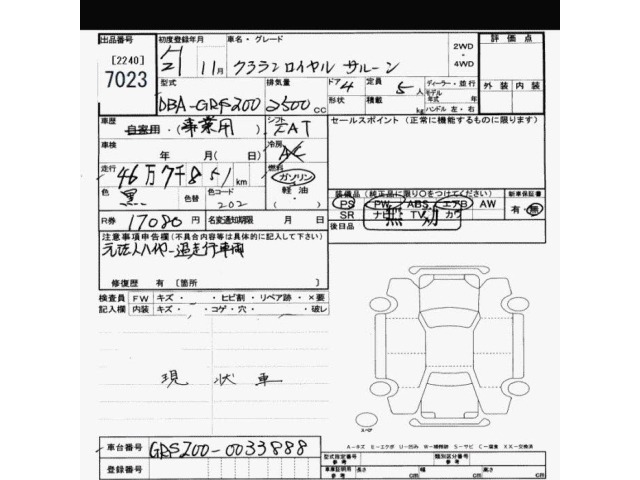 出品番号 初度登録年月 車名・グレード 評価点
[2240] 7023 H21 11月 クラウンロイヤル サルーン 2WD・4WD 外装 内装
型式 排気量 ドア 定員 ディーラー・並行
DBA-GRS200 2500cc 4 5人 モデル年式 年
形状 積載 kg ハンドル 左・右
車歴 シフト セールスポイント (正常に機能するものに限ります)
自家用・(事業用)
車検 冷房
年 月(日) AC
走行 燃料
km ガソリン・軽油・( )
色 色替 色コード
黒 202
装備品 (純正品に限り○をつけてください) 新車保証書
PS PW ABS エアB AW 有・無
SR ナビ TV カワ
無効
R券 17080円 名変通知期限 月 日 後日品
注意事項申告欄 (不具合内容等は具体的に記入して下さい)
過走行車両
修復歴 有 [箇所 ]
検査員 FW キズ・ ・ヒビ割・リペア跡・×要
記入欄 内装 キズ・ ・コゲ・穴・ ・破レ
現状車
スペア
A-キズ E-エクボ U-凹み W-補修跡 S-サビ C-腐食 XX-交換済
車台番号 GRS200-0033888 型式指定番号 参考 類別区分番号 参考
登録番号 車車証明用 参考 長さ cm 幅 cm 高さ cm